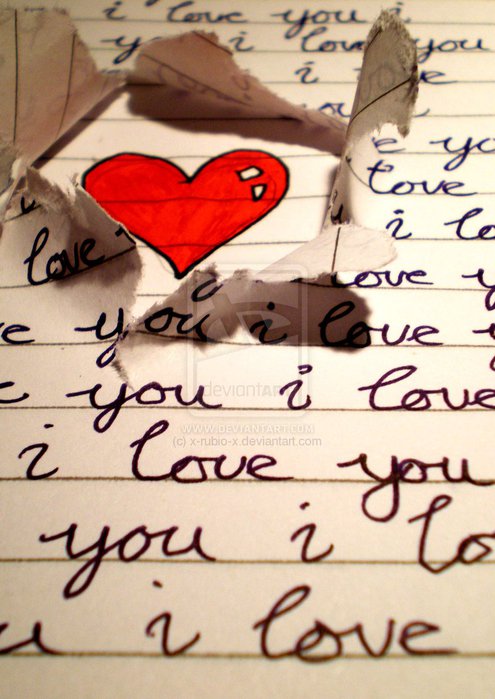 i love you i
i love you
i
you
you
love
i lo
love
love y
you i love
you i love
i love you
you i lo
i love
deviantART
WWW.DEVIANTART.COM
(c) x-rubio-x.deviantart.com